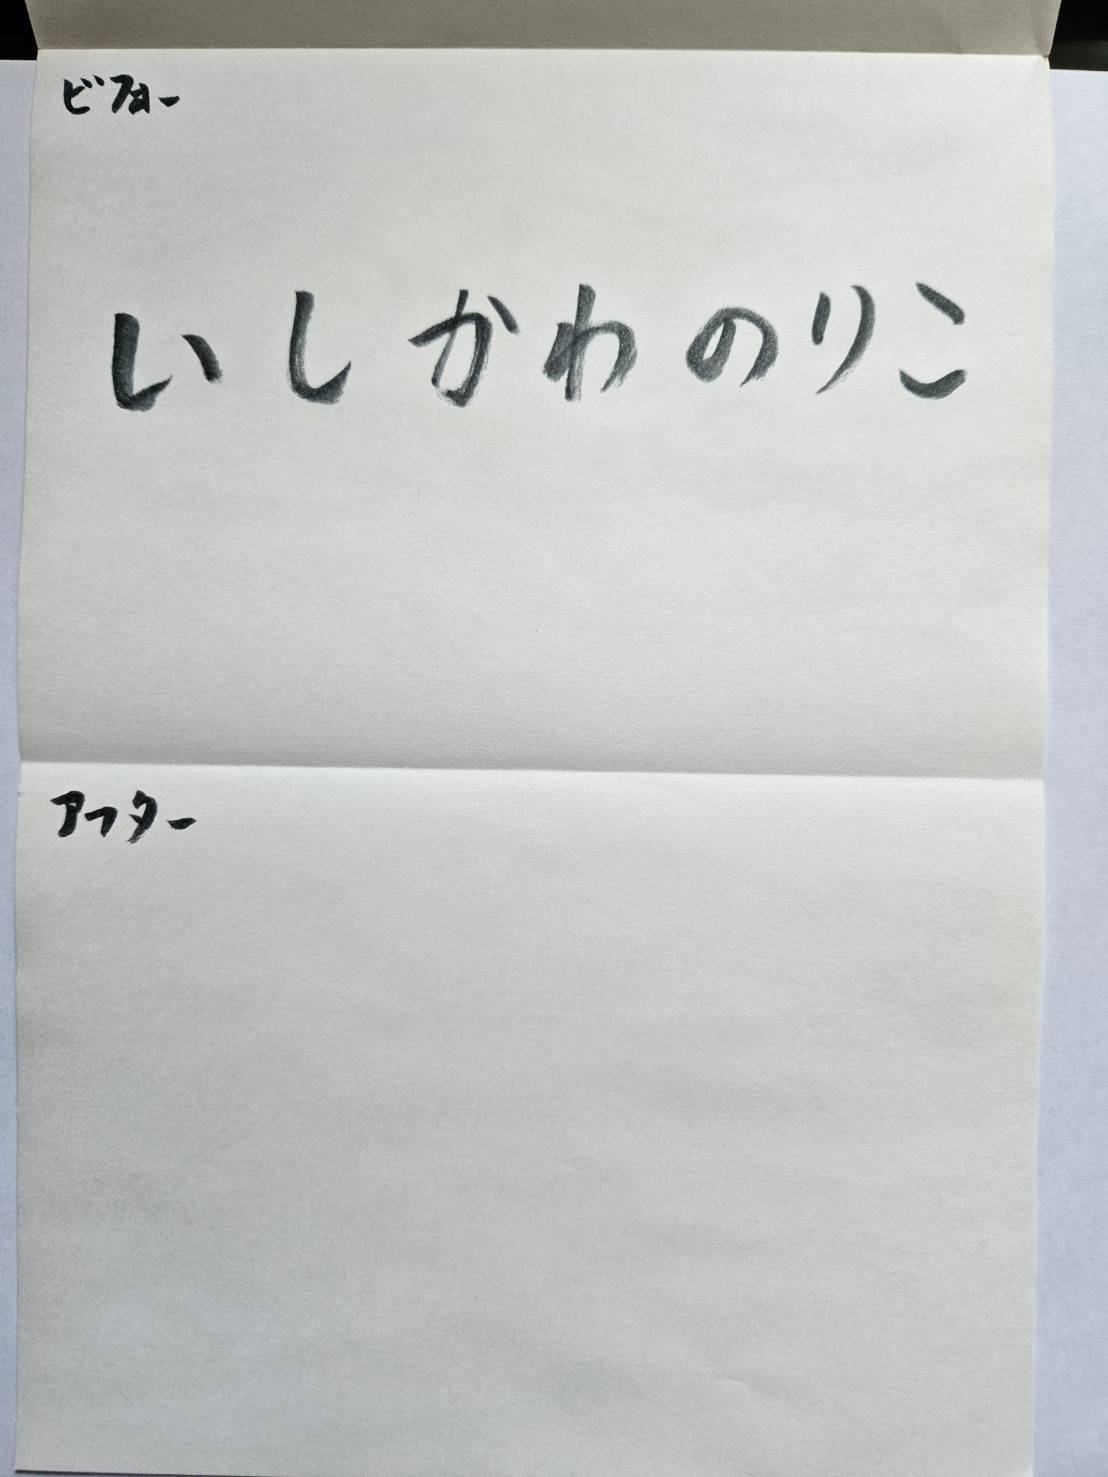 ビフォー
いしかわのりこ
アフター